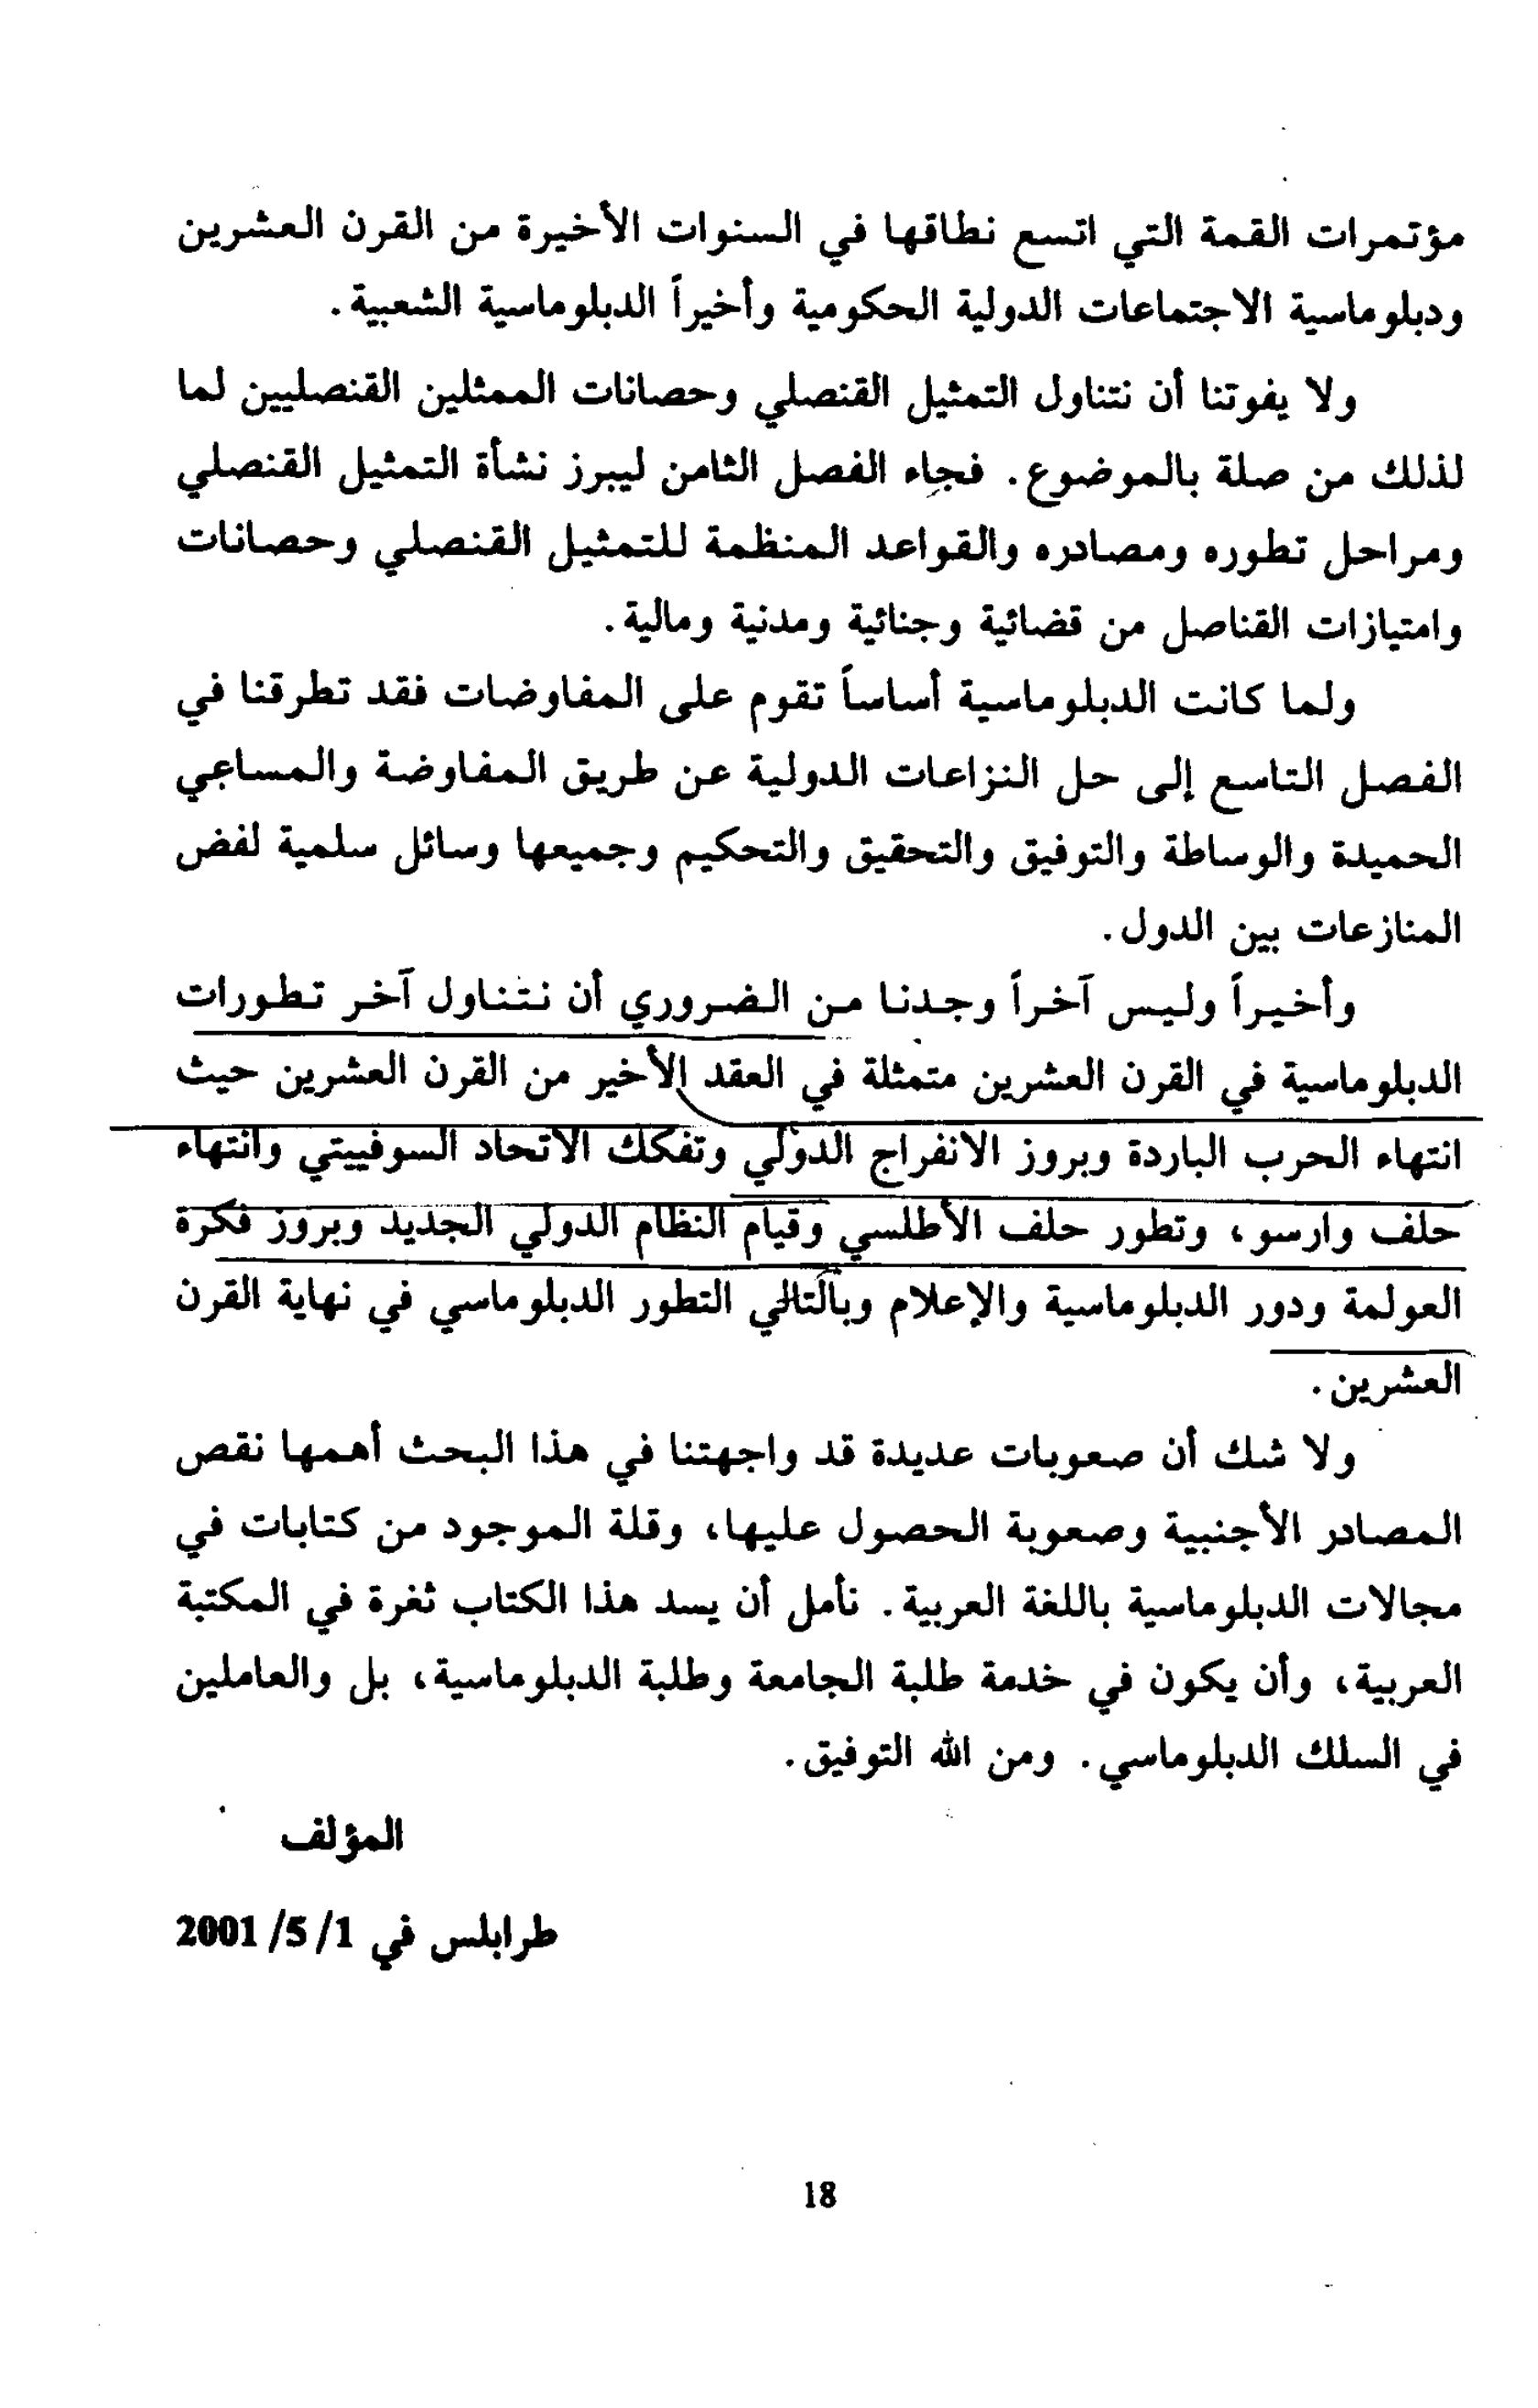 مؤتمرات القمة التي اتسع نطاقها في السنوات الأخيرة من القرن العشرين
ودبلوماسية الاجتماعات الدولية الحكومية وأخيراً الدبلوماسية الشعبية.
ولا يفوتنا أن نتناول التمثيل القنصلي وحصانات الممثلين القنصليين لما
لذلك من صلة بالموضوع. فجاء الفصل الثامن ليبرز نشأة التمثيل القنصلي
ومراحل تطوره ومصادره والقواعد المنظمة للتمثيل القنصلي وحصانات
وامتيازات القناصل من قضائية وجنائية ومدنية ومالية.
ولما كانت الدبلوماسية أساساً تقوم على المفاوضات فقد تطرقنا في
الفصل التاسع إلى حل النزاعات الدولية عن طريق المفاوضة والمساعي
الحميدة والوساطة والتوفيق والتحقيق والتحكيم وجميعها وسائل سلمية لفض
المنازعات بين الدول.
وأخيراً وليس آخراً وجدنا من الضروري أن نتناول آخر تطورات
الدبلوماسية في القرن العشرين متمثلة في العقد الأخير من القرن العشرين حيث
انتهاء الحرب الباردة وبروز الانفراج الدولي وتفكك الاتحاد السوفييتي وانتهاء
حلف وارسو، وتطور حلف الأطلسي وقيام النظام الدولي الجديد وبروز فكرة
العولمة ودور الدبلوماسية والإعلام وبالتالي التطور الدبلوماسي في نهاية القرن
العشرين.
ولا شك أن صعوبات عديدة قد واجهتنا في هذا البحث أهمها نقص
المصادر الأجنبية وصعوبة الحصول عليها، وقلة الموجود من كتابات في
مجالات الدبلوماسية باللغة العربية. نأمل أن يسد هذا الكتاب ثغرة في المكتبة
العربية، وأن يكون في خدمة طلبة الجامعة وطلبة الدبلوماسية، بل والعاملين
في السلك الدبلوماسي. ومن الله التوفيق.
المؤلف
طرابلس في 1/ 5/ 2001
18